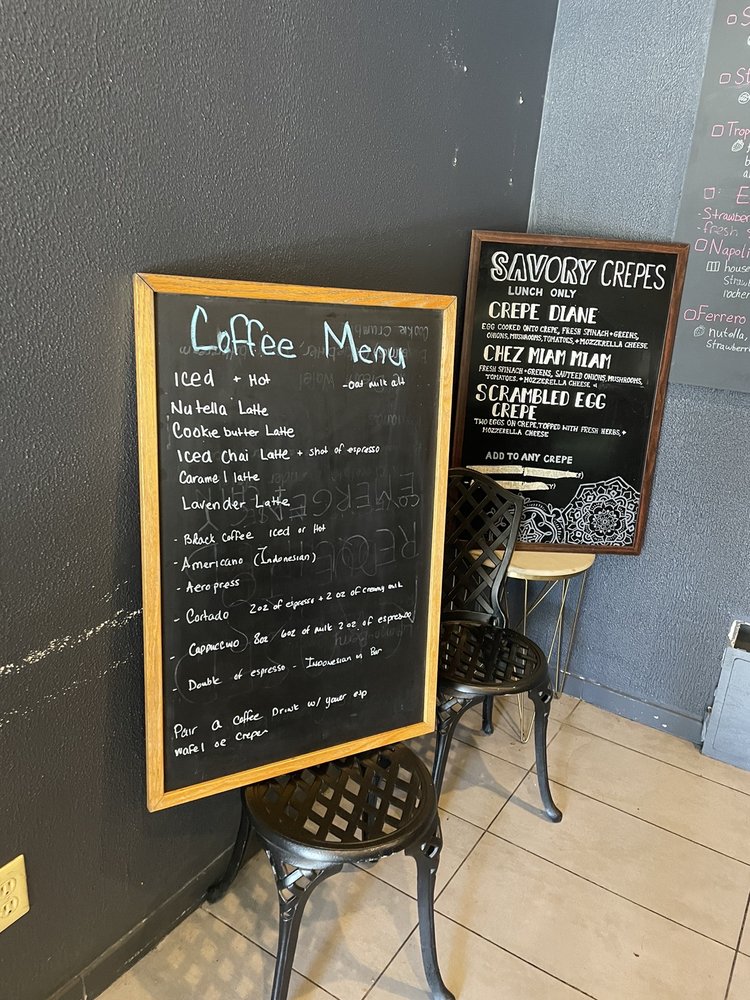 Coffee Menu
Iced + Hot -oat milk alt
Nutella Latte
Cookie butter Latte
Iced Chai Latte + shot of espresso
Caramel latte
Lavender Latte
- Black Coffee Iced or Hot
- Americano (Indonesian)
- Aeropress
- Cortado 2oz of espresso + 2 oz of creamy milk
- Cappuccino 8oz 6oz of milk 2oz. of espresso
- Double of espresso - Indonesian
Pair a coffee Drink w/ your
wafel or crepe
SAVORY CREPES
LUNCH ONLY
CREPE DIANE
EGG COOKED ONTO CREPE, FRESH SPINACH + GREENS,
ONIONS, MUSHROOMS, TOMATOES, + MOZZERELLA CHEESE
CHEZ MIAM MIAM
FRESH SPINACH + GREENS, SAUTEED ONIONS, MUSHROOMS,
TOMATOES, + MOZZERELLA CHEESE
SCRAMBLED EGG
CREPE
TWO EGGS ON CREPE, TOPPED WITH FRESH HERBS, +
MOZZERELLA CHEESE
ADD TO ANY CREPE
S
St
Trop
E
- Strawber
- fresh
Napoli
house
Straw
rocher
Ferrero
nutella,
Strawberri